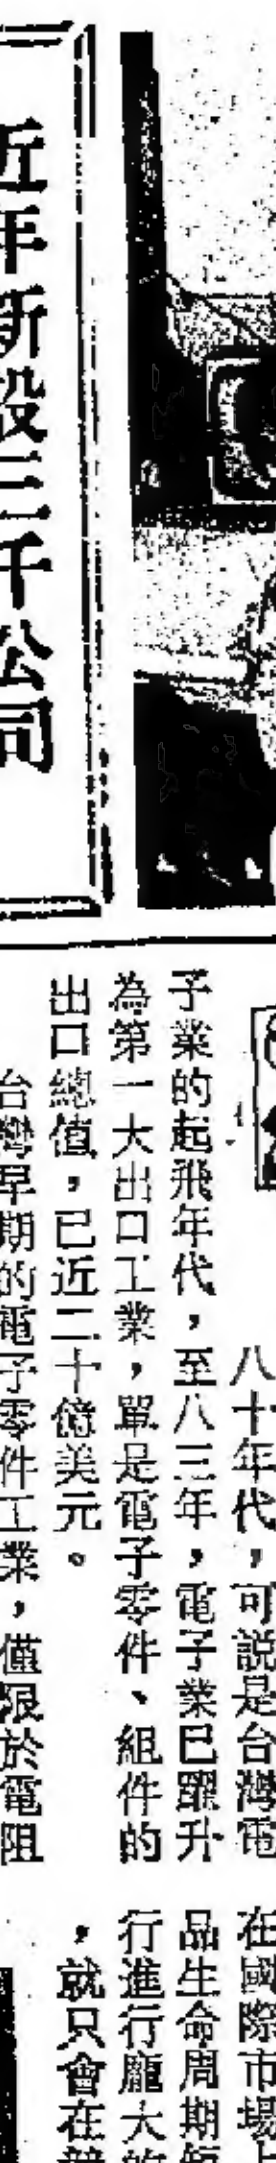 近年新設三千公司
八十年代，可説是台灣電
子業的起飛年代，至八三年，電子業已躍升
為第一大出口工業，單是電子零件、組件的
出口總值，已近二十億美元。
台灣早期的電子零件工業，僅限於電阻
在國際市場上
品生命周期短
行進行龐大的
，就只會在